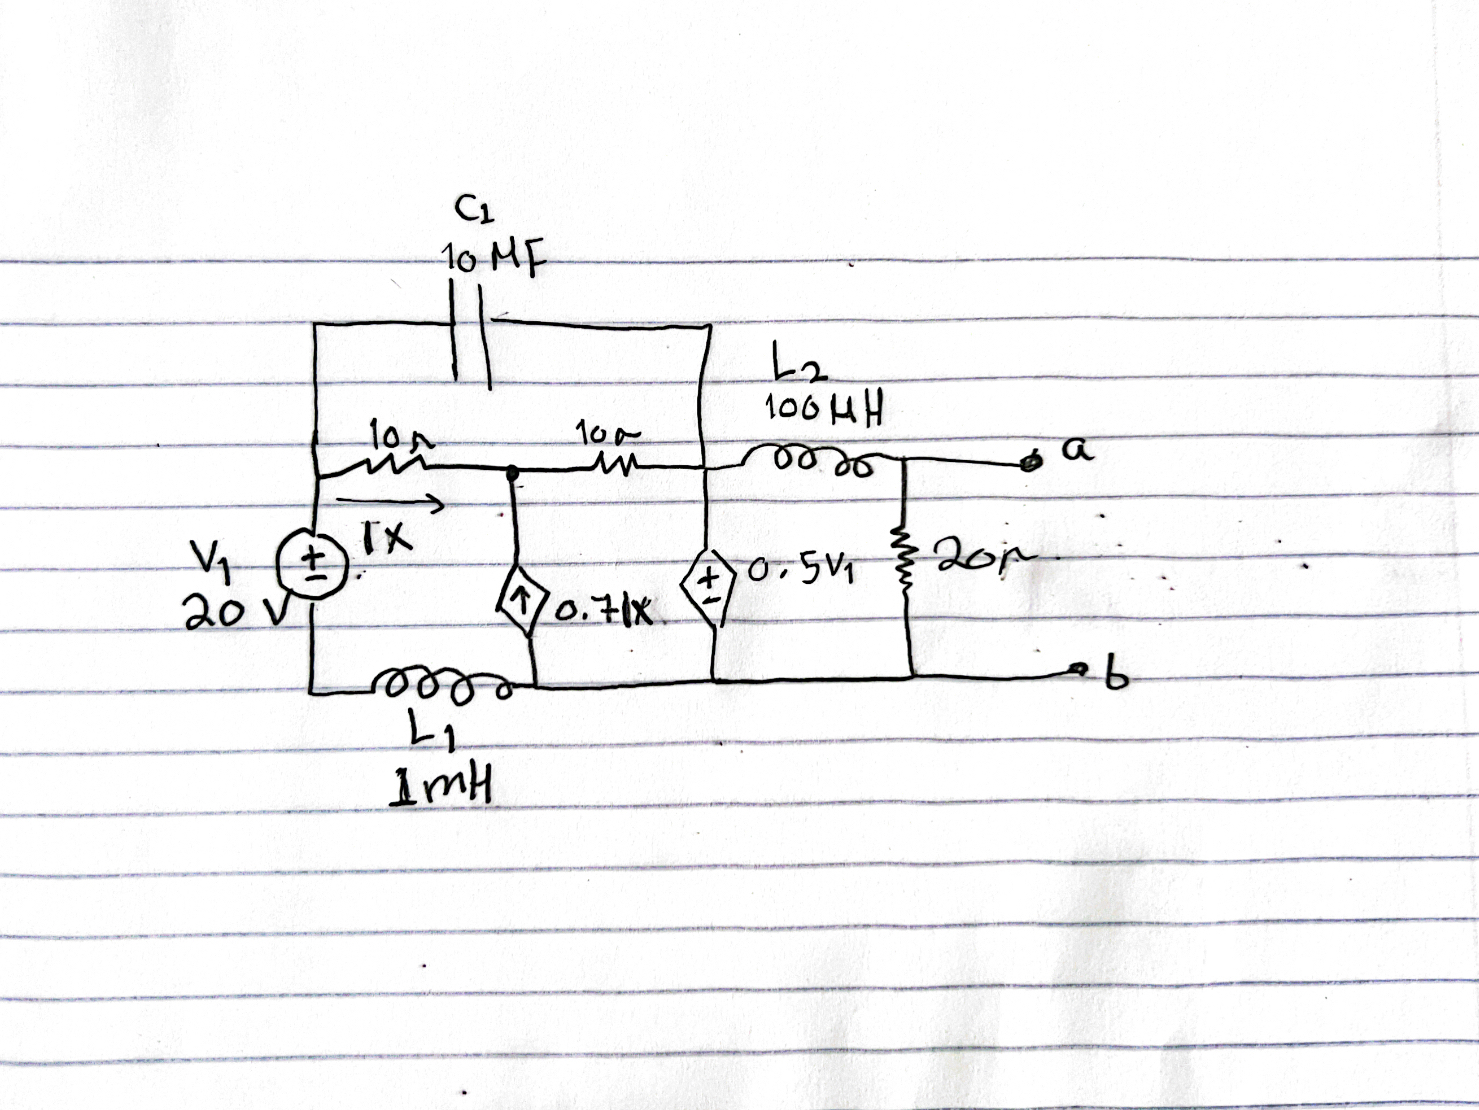 C1
10 μF
L2
100 μH
10Ω
10Ω
a
+
-
Ix
V1
20 V
0.7Ix
+
-
0.5V1
20Ω
b
L1
1mH